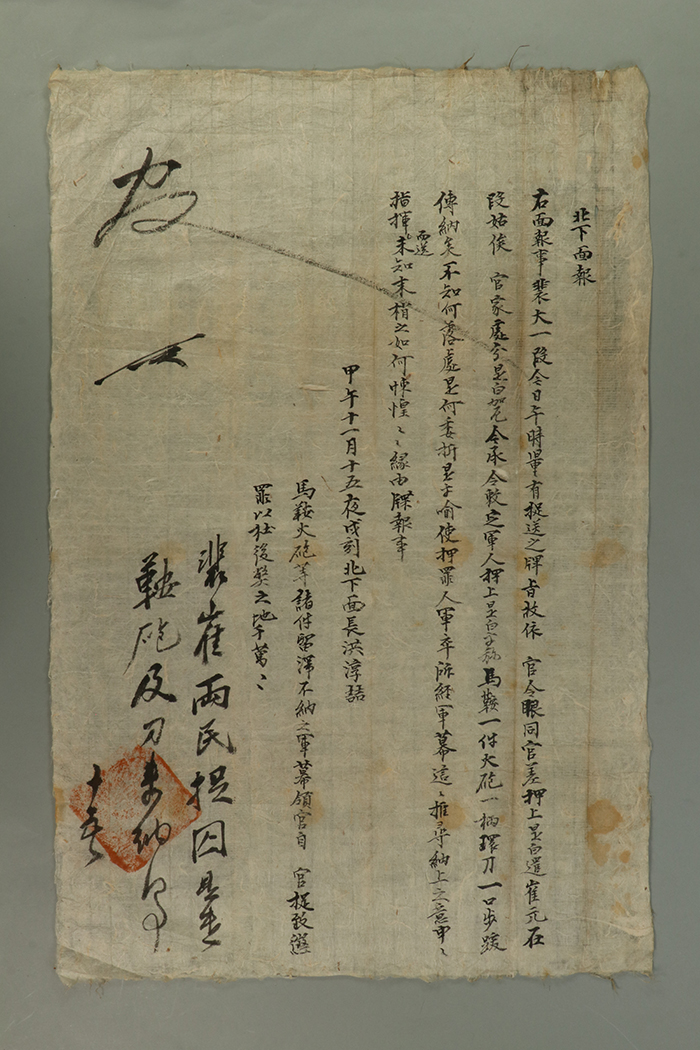 北下面報
右面報事裴大一段今日午時量有捉送之牌旨故依 官令眼同官差押上是白遣崔元石
段姑俟 官家處分是白如乎今承令敎定軍人押上是白乎旀馬鞍一件火砲一柄環刀一口步踐
傳納矣不知何落處是何委折是乎喩使押罪人軍卒所經軍幕這這推尋納上之意申申
指揮而送未知末梢之如何悚惶悚惶緣由牒報事
甲午十一月十五夜戌刻北下面長洪淳喆
馬鞍火砲等諸件留滯不納之軍幕領官自 官捉致送
罪以杜後弊之地千萬千萬
裴崔兩民捉囚是在
鞍砲及刀未納事
十五